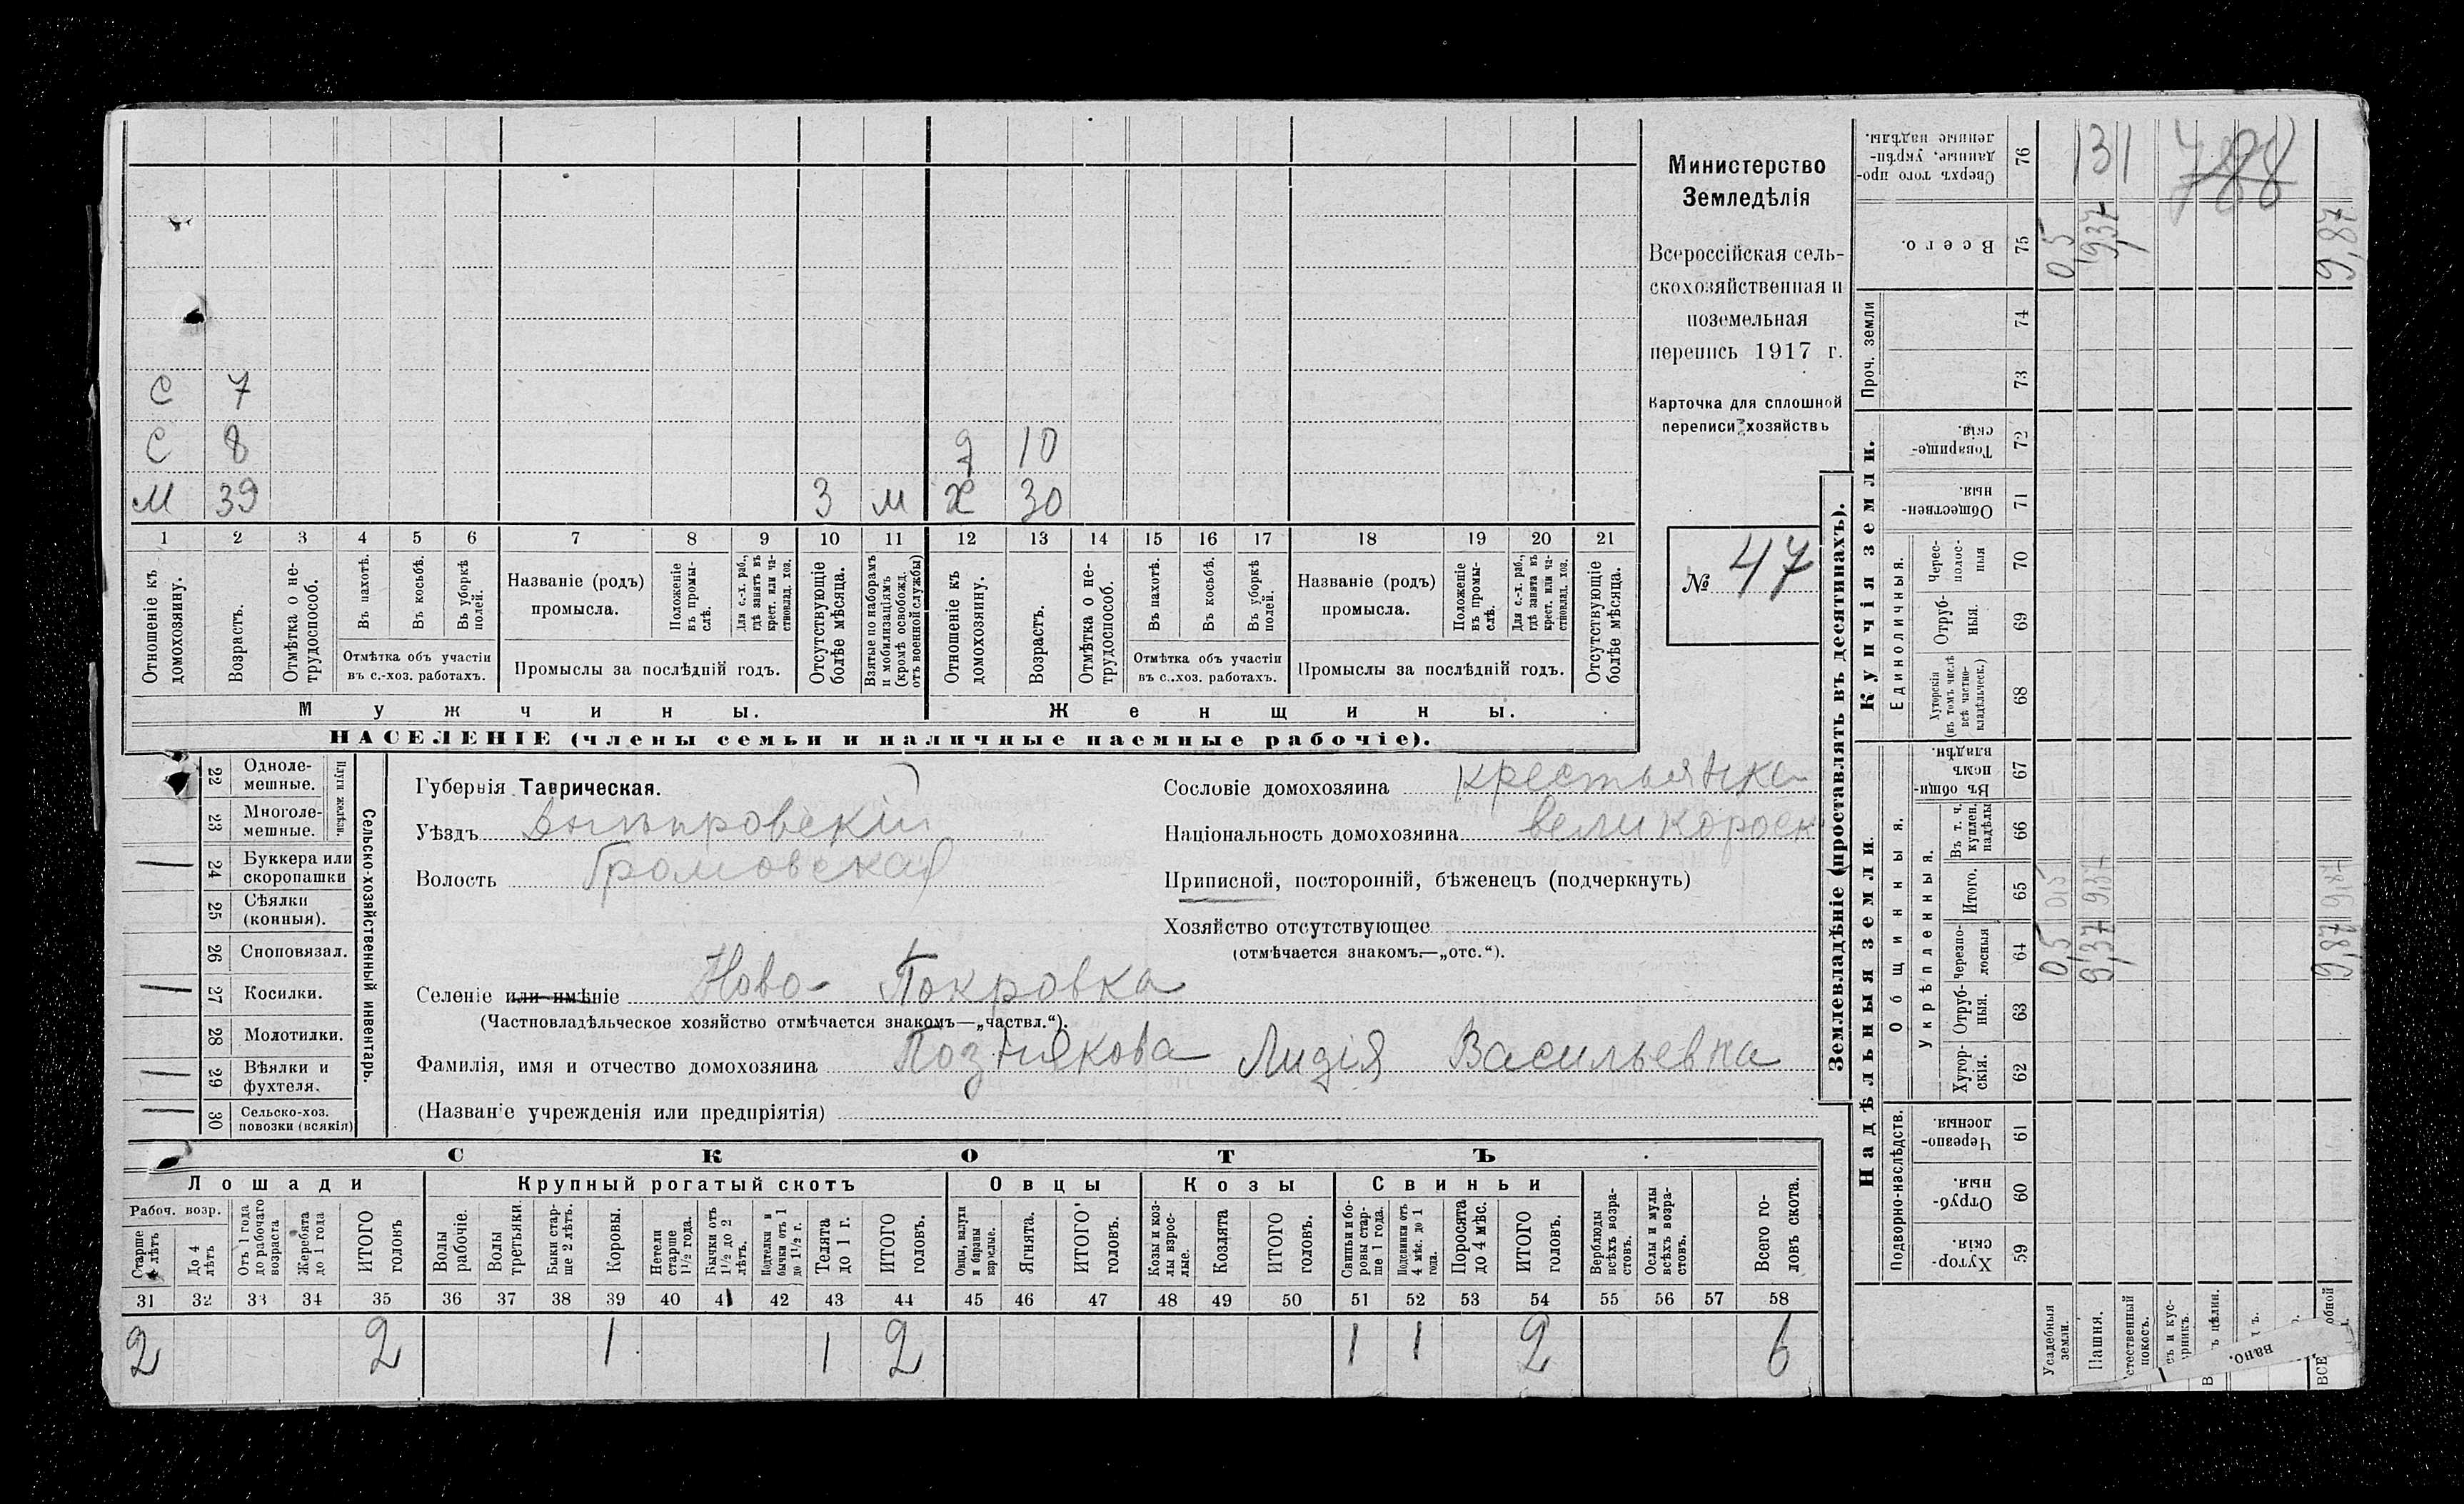 С 7
С 8 д 10
М 39 3 м Х 30
1 2 3 4 5 6 7 8 9 10 11 12 13 14 15 16 17 18 19 20 21
Отношеніе къ домохозяину.
Возрастъ.
Отмѣтка о не-
трудоспособ.
Въ пахотѣ.
Въ косьбѣ.
Въ уборкѣ
полей.
Отмѣтка объ участіи
въ с.-хоз. работахъ.
Названіе (родъ)
промысла.
Положеніе
въ промы-
слѣ.
Для с.-х. раб.,
гдѣ занятъ въ
крест. или ча-
стновлад. хоз.
Промыслы за послѣдній годъ.
Отсутствующіе
болѣе мѣсяца.
Взятые по наборамъ
и мобилизаціямъ
(кромѣ освобожд.
отъ военной службы)
Отношеніе къ
домохозяину.
Возрастъ.
Отмѣтка о не-
трудоспособ.
Въ пахотѣ.
Въ косьбѣ.
Въ уборкѣ
полей.
Отмѣтка объ участіи
въ с..хоз. работахъ.
Названіе (родъ)
промысла.
Положеніе
въ промы-
слѣ.
Для с.-х. раб.,
гдѣ занята въ
крест. или ча-
стновлад. хоз.
Промыслы за послѣдній годъ.
Отсутствующіе
болѣе мѣсяца.
Мужчины.
Женщины.
НАСЕЛЕНІЕ (члены семьи и наличные наемные рабочіе).
Министерство
Земледѣлія
Всероссійская сель-
скохозяйственная и
поземельная
перепись 1917 г.
Карточка для сплошной
переписи хозяйствъ
№ 47
22 Одноле-
мешные.
23 Многоле-
мешные.
Плуги желѣзн.
24 Буккера или
скоропашки
25 Сѣялки
(конныя).
26 Сноповязал.
27 Косилки.
28 Молотилки.
29 Вѣялки и
фухтеля.
30 Сельско-хоз.
повозки (всякія)
Сельско-хозяйственный инвентарь.
Губернія Таврическая.
Уѣздъ Днѣпровскій
Волость Громовская
Селеніе или имѣніе Ново-Покровка
(Частновладѣльческое хозяйство отмѣчается знакомъ—„частвл.“).
Фамилія, имя и отчество домохозяина Познякова Лидія Васильевна
(Названіе учрежденія или предпріятія)
Сословіе домохозяина крестьянка
Національность домохозяина великоросс
Приписной, посторонній, бѣженецъ (подчеркнуть)
Хозяйство отсутствующее
(отмѣчается знакомъ—„отс.“).
СКОТЪ
Лошади
Крупный рогатый скотъ
Овцы
Козы
Свиньи
Рабоч. возр.
Старше
4 лѣтъ
До 4
лѣтъ
Отъ 1 года
до рабочаго
возраста
Жеребята
до 1 года
ИТОГО
головъ
Волы
рабочіе.
Волы
третьяки.
Быки стар-
ше 2 лѣтъ.
Коровы.
Нетели
старше
1½ года.
Бычки отъ
1½ до 2
лѣтъ.
Подтелки и
бычки отъ 1
до 1½ г.
Телята
до 1 г.
ИТОГО
головъ.
Овцы, валухи
и бараны
взрослые.
Ягнята.
ИТОГО
головъ.
Козы и коз-
лы взрос-
лые.
Козлята
ИТОГО
головъ.
Свиньи и бо-
ровы стар-
ше 1 года.
Подсвинки отъ
4 мѣс. до 1
года.
Поросята
до 4 мѣс.
ИТОГО
головъ.
Верблюды
всѣхъ возра-
стовъ.
Ослы и мулы
всѣхъ возра-
стовъ.
Всего го-
ловъ скота.
31 32 33 34 35 36 37 38 39 40 41 42 43 44 45 46 47 48 49 50 51 52 53 54 55 56 57 58
2 2 1 1 2 1 1 2 6
Землевладѣніе (проставлять въ десятинахъ).
Надѣльныя земли.
Купчія земли.
Проч. земли
Подворно-наслѣдств.
Общинныя.
Укрѣпленныя.
Единоличныя.
Сверхъ того про-
данные, укрѣп-
ленные надѣлы.
76
131
788
Всего.
75
0,5
9,37
9,87
74
73
Товарище-
скія.
72
Обществен-
ныя.
71
Черес-
полос-
ныя
70
Отруб-
ныя.
69
Хуторскія
(въ томъ числѣ
всѣ частно-
владѣльческ.)
68
Въ общин-
номъ
владѣн.
67
Въ т. ч.
куплен.
надѣлы
66
Итого.
65
0,5
9,37
9,87
Черезпо-
лосныя
64
0,5
9,37
9,87
Отруб-
ныя.
63
Хутор-
скія.
62
Черезпо-
лосныя.
61
Отруб-
ныя.
60
Хутор-
скія.
59
Усадебныя
земли.
Пашня.
стественный
покосъ.